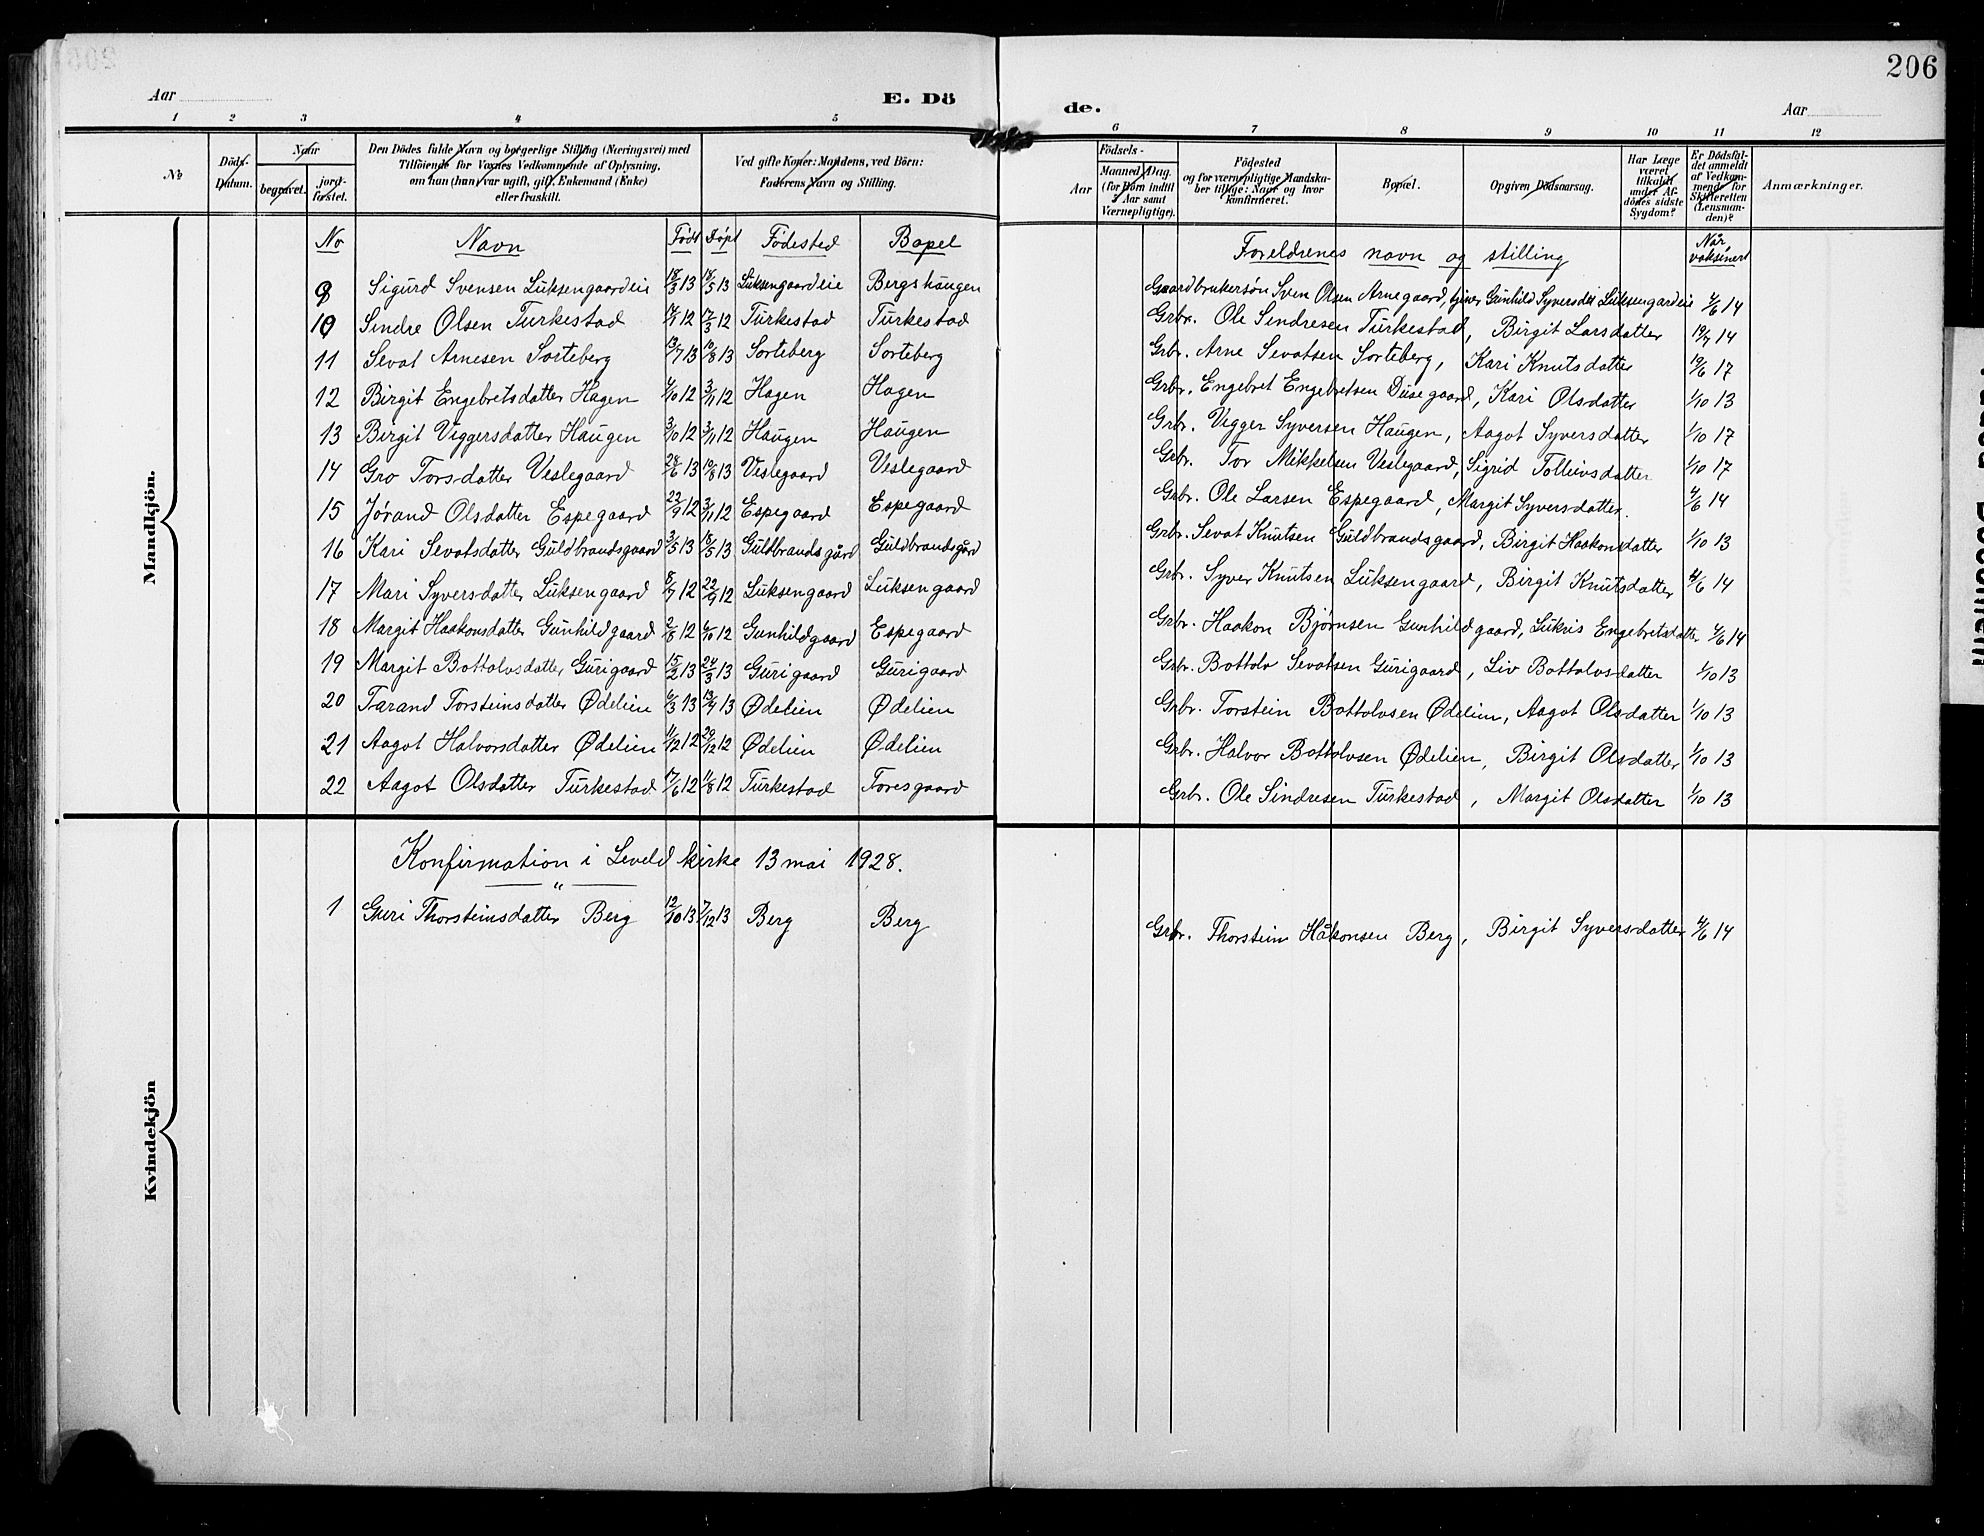 206
Aar
E. Dö
de.
Aar
1 2 3 4 5 6 7 8 9 10 11 12
No
Döds-Datum.
Naar
begravet.
jord-fæstet.
Den Dödes fulde Navn og borgerlige Stilling (Næringsvei) med
Tilföiende for Voxnes Vedkommende af Oplysning,
om han (hun) var ugift, gift, Enkemand (Enke)
eller fraskilt.
Ved gifte Koner: Mandens, ved Börn:
Faderens Navn og Stilling.
Födsels-
Aar
Maaned, Dag.
(for Börn indtil
2 Aar samt
Værnepligtige).
Födested
og for værnepligtige Mandska-
ber tillige: Naar og hvor
konfirmeret.
Bopæl.
Opgiven Dödsaarsag.
Har Læge
været
tilkaldt
under Af-
dödes sidste
Sygdom?
Er Dödsfal-
det anmeldt
af Vedkom-
mende for
Skifteretten
(Lensman-
den)?
Anmærkninger.
Mandkjön.
No Navn Født Døpt Fødested Bopel Foreldrenes navn og stilling Når vaksinert
9 Sigurd Svensen Luksengaardeie 18/3 13 18/5 13 Luksengaardeie Bergshaugen Gaardbrukersøn Sven Olsen Arnegaard, tjener Gunhild Syversdtr Luksengardeie 4/6 14
10 Sindre Olsen Turkestad 12 17/3 12 Turkestad Turkestad Grbr. Ole Sindresen Turkestad, Birgit Larsdatter 19/7 14
11 Sevat Arnesen Sorteberg 13/7 13 10/8 13 Sorteberg Sorteberg Grbr. Arne Sevatsen Sorteberg, Kari Knutsdatter 19/6 17
12 Birgit Engebretsdatter Hagen 4/10 12 3/11 12 Hagen Hagen Grbr. Engebret Engebretsen Dusegaard, Kari Olsdatter 1/10 13
13 Birgit Viggersdatter Haugen 3/10 12 3/11 12 Haugen Haugen Grbr. Vigger Syversen Haugen, Aagot Syversdatter 1/10 17
14 Gro Torsdatter Veslegaard 28/6 13 10/8 13 Veslegaard Veslegaard Grbr. Tor Mikkelsen Veslegaard, Sigrid Tolleivsdatter 1/10 17
15 Jórand Olsdatter Espegaard 22/9 12 3/11 12 Espegaard Espegaard Grbr. Ole Larsen Espegaard, Margit Syversdatter. 4/6 14
16 Kari Sevatsdatter Guldbrandsgaard 3/5 13 18/5 13 Guldbrandsgård Guldbrandsgård Grbr. Sevat Knutsen Guldbrandsgaard, Birgit Haakonsdatter 1/10 13
17 Mari Syversdatter Luksengaard 8/9 12 22/9 12 Luksengaard Luksengaard Grbr. Syver Knutsen Luksengaard, Birgit Knutsdatter 4/6 14
18 Margit Haakonsdatter Gunhildgaard 2/8 12 6/10 12 Gunhildgaard Espegaard Grbr. Haakon Bjørnsen Gunhildgaard, Lukris Engebretsdatter 4/6 14
19 Margit Bottolvsdatter Gurigaard 15/2 13 24/3 13 Gurigaard Gurigaard Grbr. Bottolv Sevatsen Gurigaard, Liv Bottolvsdatter 1/10 13
20 Tarand Torsteinsdatter Ødelien 6/3 13 13/4 13 Ødelien Ødelien Grbr. Torstein Bottolvsen Ødelien, Aagot Olsdatter 1/10 13
21 Aagot Halvorsdatter Ødelien 11/12 12 29/12 12 Ødelien Ødelien Grbr. Halvor Bottolvsen Ødelien, Birgit Olsdatter 1/10 13
22 Aagot Olsdatter Turkestad 17/6 12 11/8 12 Turkestad Toresgaard Grbr. Ole Sindresen Turkestad, Margit Olsdatter 1/10 13
Kvindekjön
Konfirmation i Leveld kirke 13 mai 1928.
1 Guri Thorsteinsdatter Berg 12/10 13 7/12 13 Berg Berg Grbr. Thorstein Håkonsen Berg, Birgit Syversdatter 4/6 14